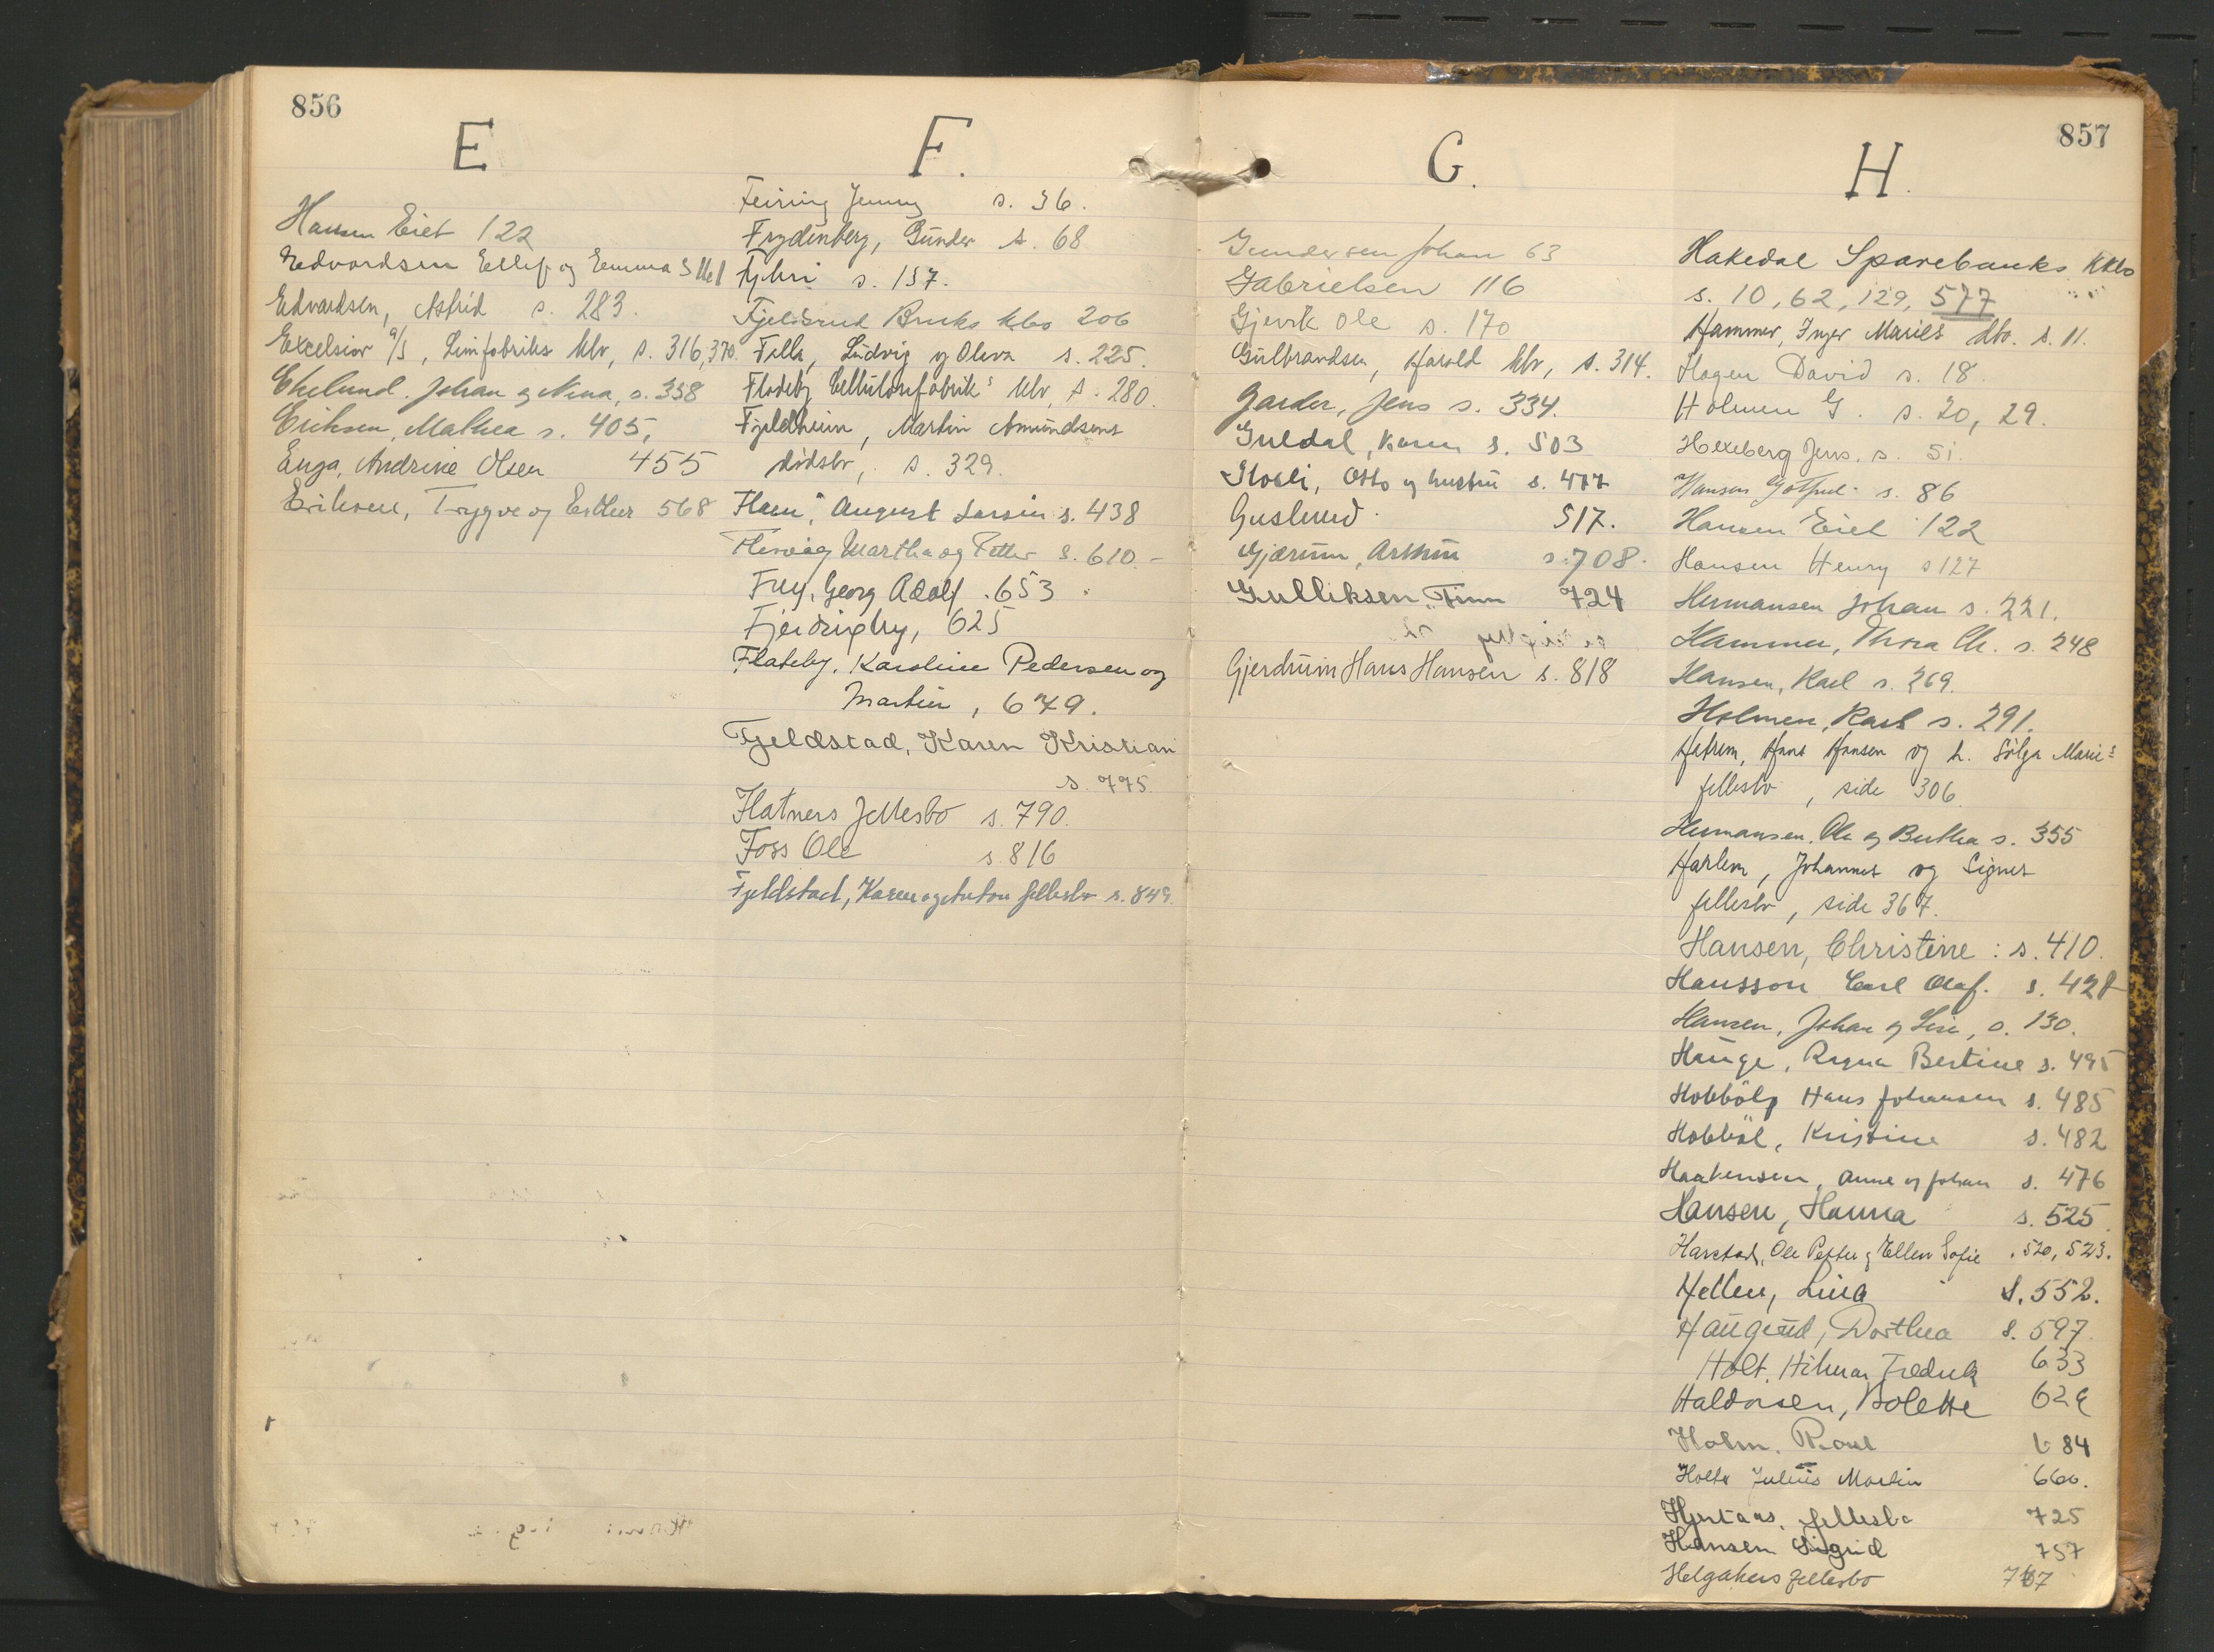 856
E
Hansen Eiet 122
Edvardsen Ellef og Emma S
Edvardsen, Astrid s. 283.
Excelsior A/S, Limfabriks kbv, s. 316, 370.
Ekelund. Johan og Nina, s. 358
Eriksen, Mathea s. 405,
Enga, Andrine Olsen 455
Eriksen, Trygve og Esther 568
F.
Feiring Jenny s. 36.
Frydenberg, Gunder s. 68
s. 157.
Fjeldsrud Bruks kbo 206
Fille, Ludvig og Oleva s. 225.
Flateby Cellulosefabrik's kbv, s. 280.
Fjeldheim, Martin Amundsens
dødsbo, s. 329.
Flaen, August Larsen s. 438
Martha og Petter s. 610. -
Frey, Georg Adolf . 653 .
Fjerdingby, 625
Flateby, Karoline Pedersen og
Martin, 649.
Fjeldstad, Karen Kristian
s. 775.
Flatners fellesbo s. 790.
Foss Ole s. 816
Fjeldstad, Karen og Anton fellesbo s. 849.
G.
Gundersen Johan 63
Gabrielsen 116
Gjersik Ole s. 170
Gulbrandsen, Harold kbv, s. 314.
Garder, Jens s. 334.
Guldal, Karen s. 503
Otto og hustru s. 477
Guslund 517.
Gjærum, Arthur s. 708.
Gulliksen, Finn 724
Gjerdrum Hans Hansen s. 818
857
H.
Hakedal Sparebanks kkbo
s. 10, 62, 129, 577
Hammer, Inger Maries dbo. s. 11.
Hagen David s. 18.
Holmen G. s. 20, 29.
Hexeberg Jens. s. 51.
Hansen Gotfred s. 86
Hansen Eiel 122
Hansen Henry s 127
Hermansen Johan s. 221.
Hammer, Thora Ch. s. 248
Hansen, Karl s. 269.
Holmen, Karl s. 291.
Hans Hansen og h. Helga Marie's
fellesbo, side 306.
Hermansen, Ole og Berthea s. 355
Harlem, Johannes og Signes
fellesbo, side 367.
Hansen, Christine : s. 410.
Hansson Carl Olaf. s. 428
Hansen, Johan og Lise, s. 130.
Hauge, Ragna Bertine s. 495
Hobbøl, Hans Johansen s. 485
Hobbøl, Kristine s. 482
Haakensen, Anne og Johan s. 476
Hansen, Hanna s. 525.
Harstad, Ole Petter og Ellen Sofie . 520, 523.
Hellen, Lina s. 552.
Haugerud, Dorthea s. 597.
Holt, Hilmar Fredrik 633
Haldorsen, Bolette 629
Holm. 684
Holte Julius Martin 660.
Hjertaas, fellesbo 725
Hansen Sigrid 757
Helgakers fellesbo 767